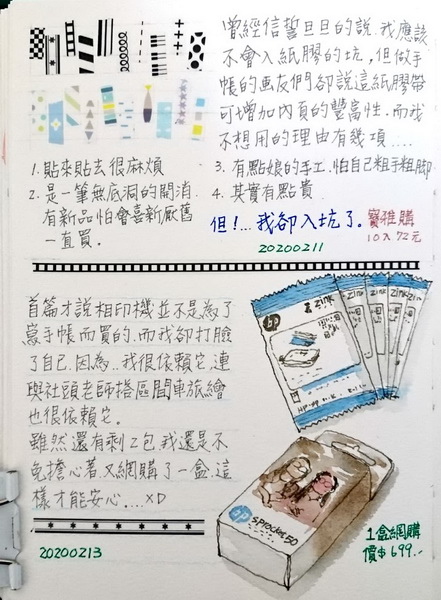 曾經信誓旦旦的說.我應該
不會入紙膠的坑,但做手
帳的画友們卻說這紙膠帶
可增加內頁的豐富性.而我
不想用的理由有幾項....
1. 貼來貼去很麻煩
2. 是一筆無底洞的開消.
有新品怕會喜新厭舊
一直買。
3. 有點娘的手工.怕自己粗手粗腳
4. 其實有點貴.
但!...我卻入坑了。
寶雅購
10入72元
20200211
首篇才說相印機並不是為了
寫手帳而買的.而我卻打臉
了自己.因為..我很依賴它.連
與社頭老師搭區間車旅繪
也很依賴它。
雖然還有剩2包.我還是不
免擔心著.又網購了一盒.這
樣才能安心....XD
20200213
hp
Zink
Zink
Zink
hp
sprocket 50
1盒網購
價$699..